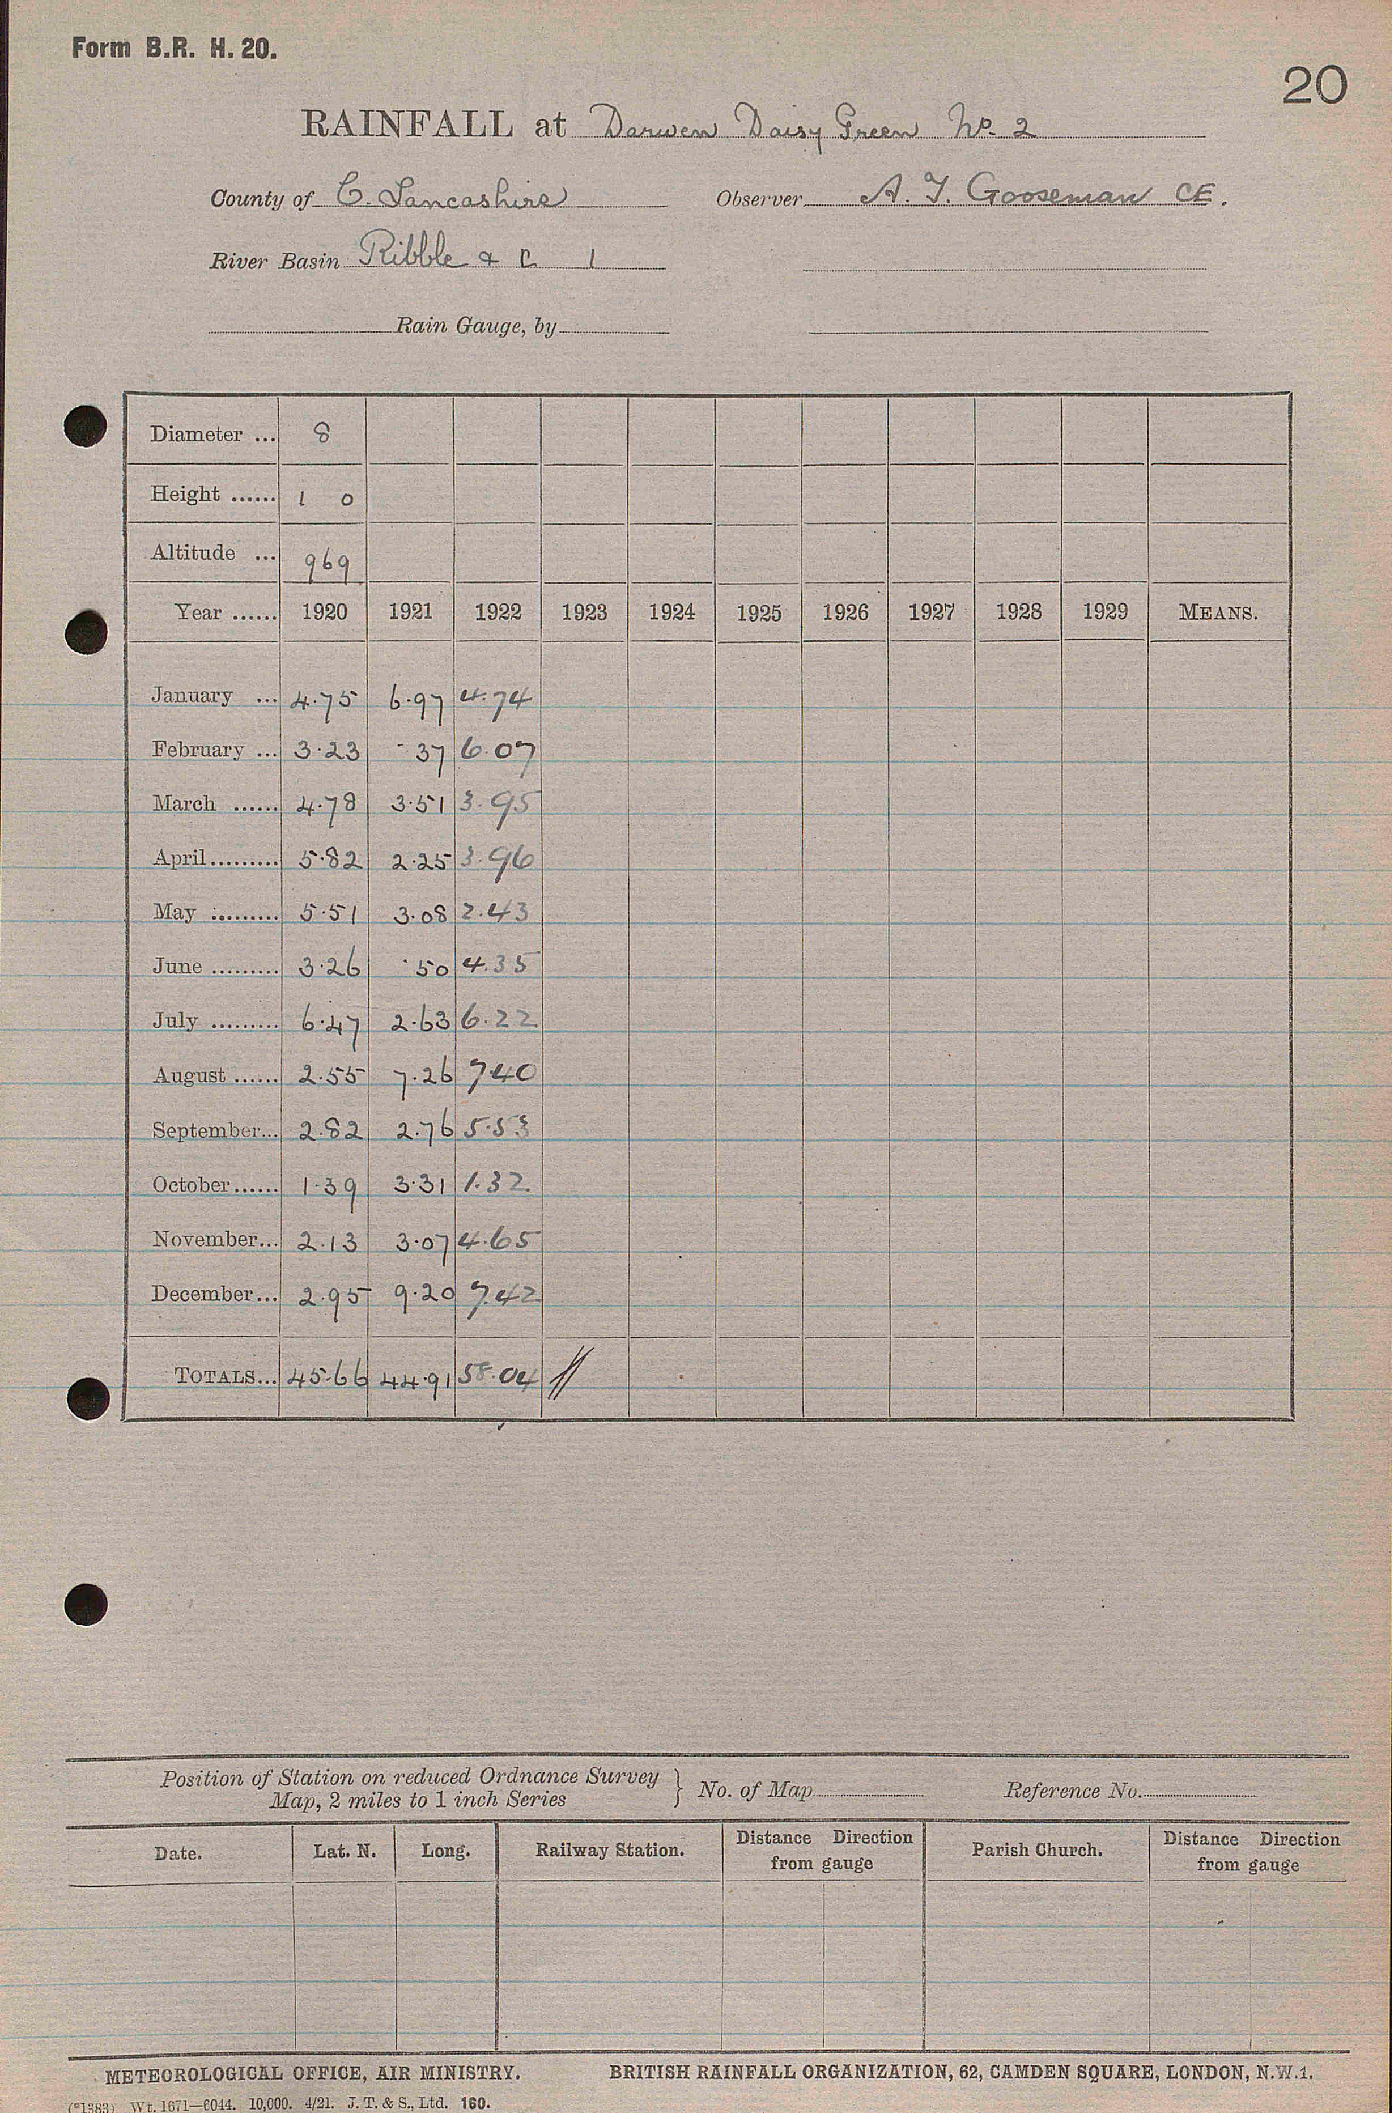 Form B.R. H. 20.
20
RAINFALL at Darwen Daisy Green No. 2
County of C. Lancashire Observer A. T. Gooseman CE.
River Basin Ribble & C 1
Rain Gauge, by
Diameter ... 8
Height ...... 1 0
Altitude ... 969
Year ...... 1920 1921 1922 1923 1924 1925 1926 1927 1928 1929 MEANS.
January ... 4.75 6.97 4.74
February ... 3.23 .37 6.07
March ...... 4.78 3.51 3.95
April......... 5.82 2.25 3.96
May ......... 5.51 3.08 2.43
June ......... 3.26 .50 4.35
July ......... 6.47 2.63 6.22
August ...... 2.55 7.26 7.40
September... 2.82 2.76 5.53
October...... 1.39 3.31 1.32
November... 2.13 3.07 4.65
December... 2.95 9.20 7.42
TOTALS... 45.66 44.91 58.04 //
Position of Station on reduced Ordnance Survey
Map, 2 miles to 1 inch Series } No. of Map Reference No.
Date. Lat. N. Long. Railway Station. Distance Direction from gauge Parish Church. Distance Direction from gauge
METEOROLOGICAL OFFICE, AIR MINISTRY. BRITISH RAINFALL ORGANIZATION, 62, CAMDEN SQUARE, LONDON, N.W.1.
(*1383) Wt. 1671—6044. 10,000. 4/21. J. T. & S., Ltd. 160.